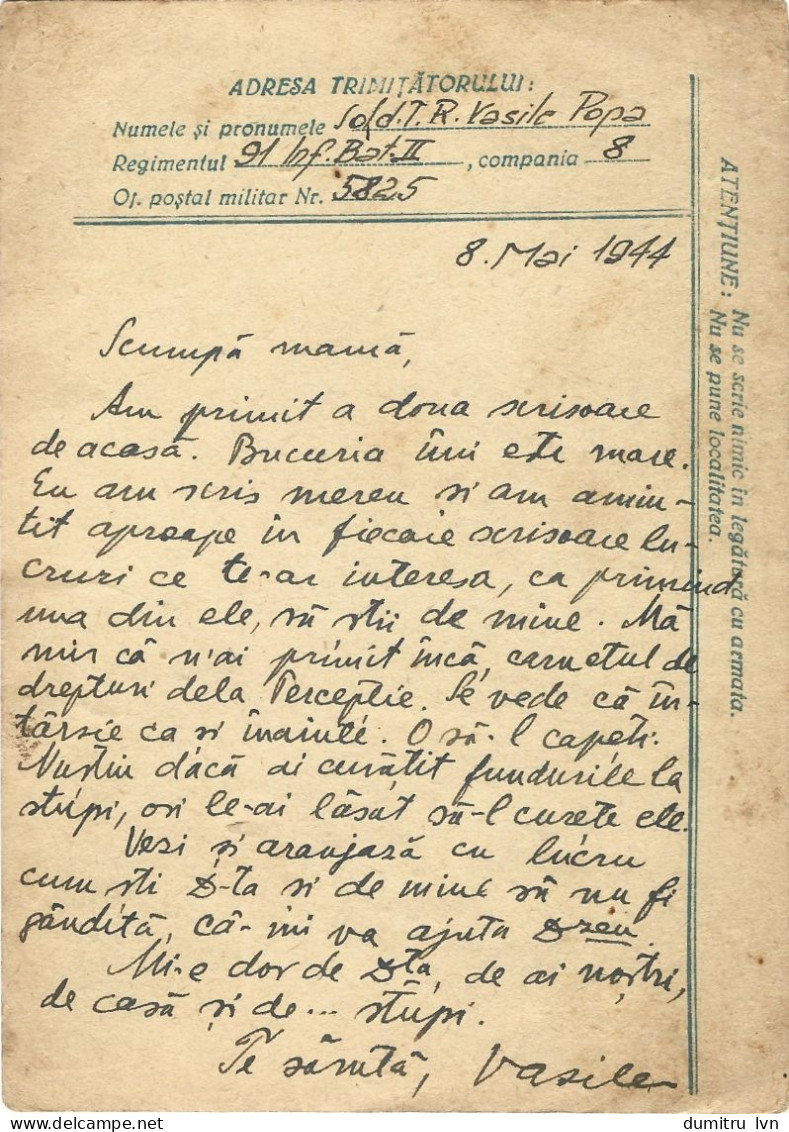 ADRESA TRIMIȚĂTORULUI:
Numele și pronumele Sold. T. R. Vasile Popa
Regimentul 91 Inf. Bat. II, compania 8
Of. poștal militar Nr. 5825
8. Mai 1944
Scumpă mamă,
Am primit a doua scrisoare
de acasă. Bucuria îmi este mare.
Eu am scris mereu si am amin-
tit aproape în fiecare scrisoare lu-
cruri ce te-ar interesa, ca primind
una din ele, să stii de mine. Mă
mir că n'ai primit încă, carnetul de
drepturi dela Percepție. Se vede că în-
târsie ca si înainte. O să-l capeți.
Nuștiu dacă ai curățit fundurile la
stupi, ori le-ai lăsat să-l curețe ele.
Vezi și aranjază cu lucru
cum sti D-ta si de mine să nu fi
gândită, că-mi va ajuta Dzeu.
Mi-e dor de D-ta, de ai noștri,
de casă și de... stupi.
Te sărută, Vasile
ATENȚIUNE: Nu se scrie nimic în legătură cu armata.
Nu se pune localitatea.
dumitru lvn